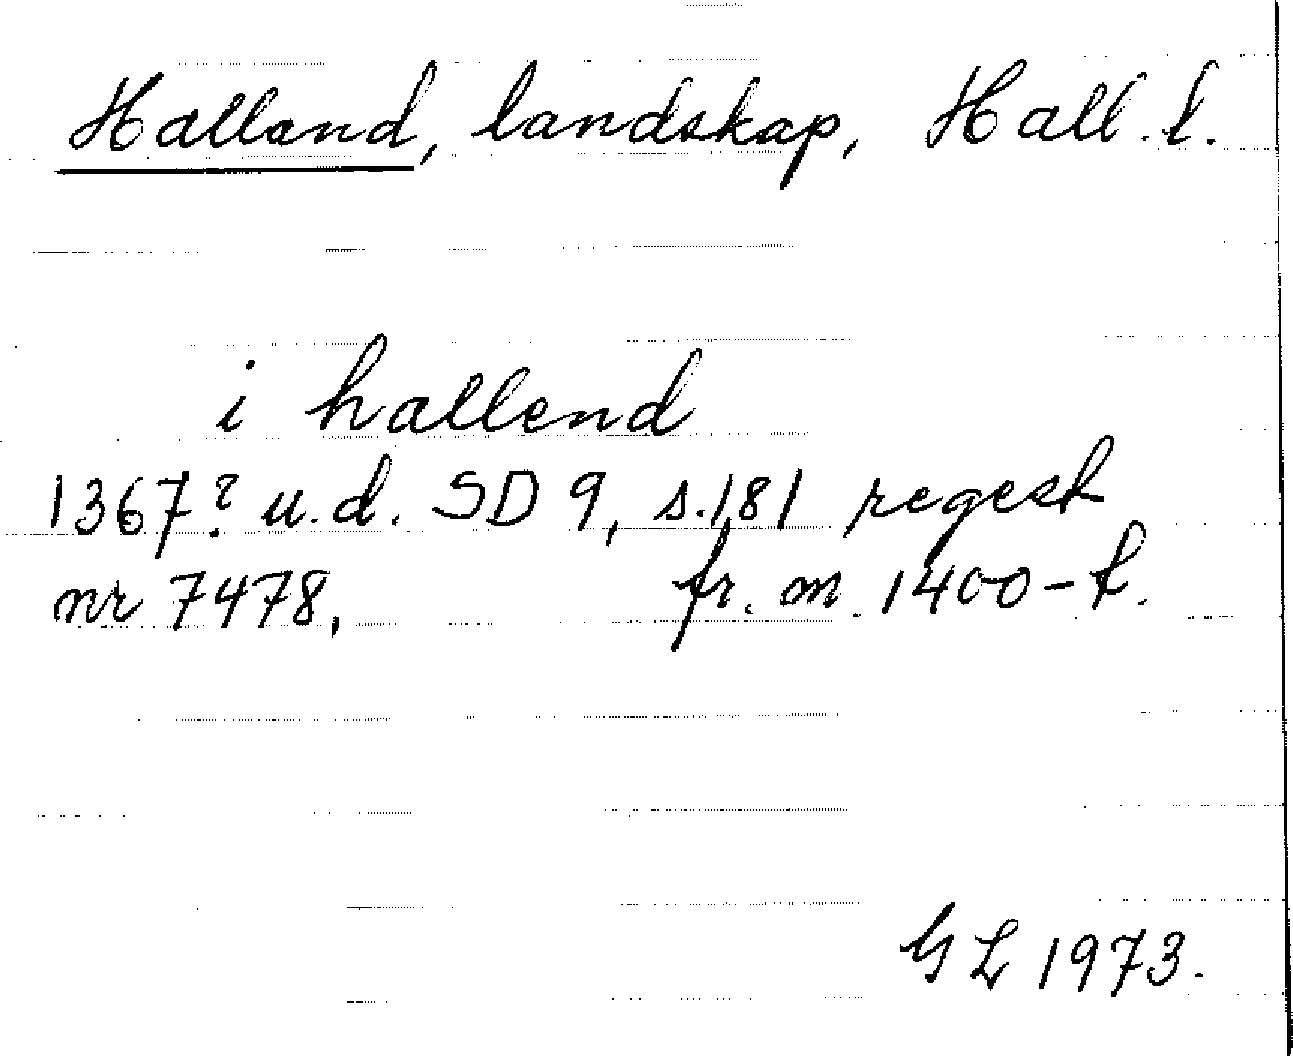 Halland, landskap, Hall. l.
i hallend
1367? u.d. SD 9, s.181 regest
nr 7478, fr. m. 1400-t.
GL 1973.